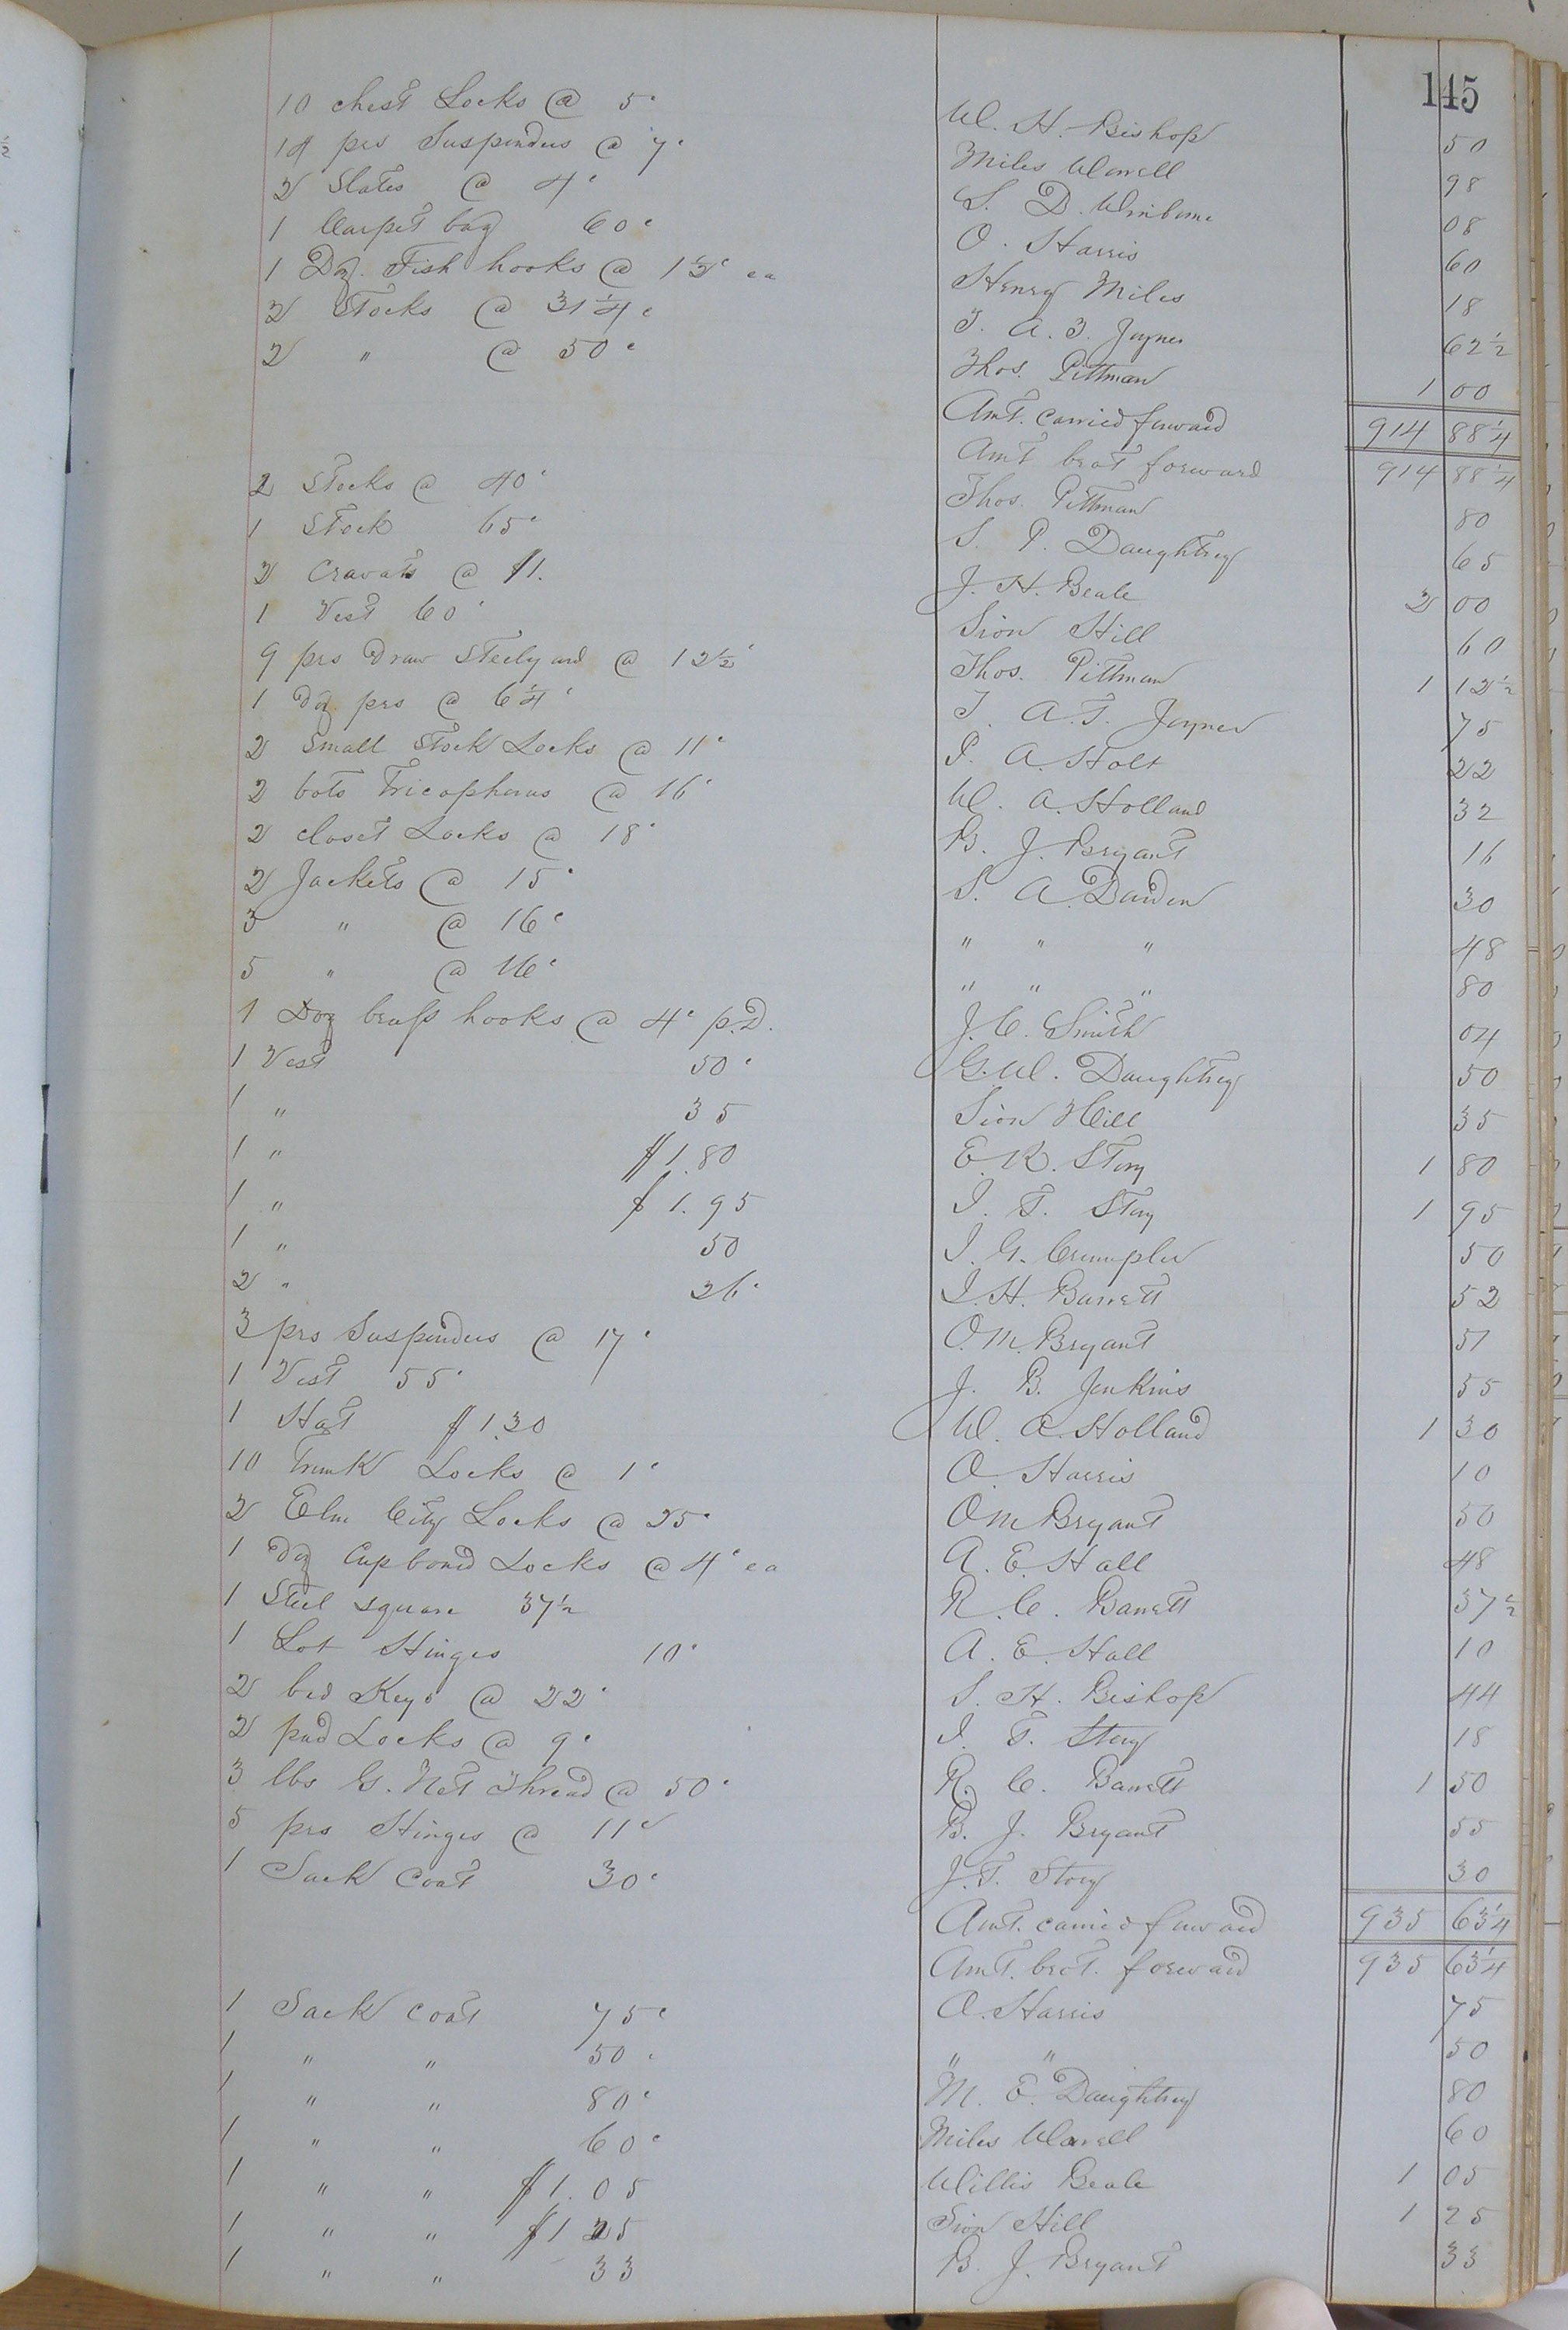 145
10 chest Locks @ 5c W. H. Bishop 50
14 prs Suspenders @ 7c Miles Worrell 98
2 Slates @ 4c S. D. Winborne 08
1 Carpet bag 60c O. Harris 60
1 Doz. Fish hooks @ 1½c ea Henry Miles 18
2 Stocks @ 31¼c T. A. T. Joyner 62½
2 " @ 50c Thos. Pittman 1 00
Amt. carried forward 914 88¼
Amt brot forward 914 88¼
2 Stocks @ 40c Thos. Pittman 80
1 Stock 65c S. P. Daughtrey 65
2 Cravats @ $1. J. H. Beale 2 00
1 Vest 60c Sion Hill 60
9 prs Draw Steelyard @ 12½c Thos. Pittman 1 12½
1 doz. prs @ 6¼c T. A. T. Joyner 75
2 Small Stock Locks @ 11c P. A. Holt 22
2 bots Tricopherous @ 16c W. A. Holland 32
2 closet Locks @ 18c B. J. Bryant 16
2 Jackets @ 15c S. A. Darden 30
3 " @ 16c " " " 48
5 " @ 16c " " " 80
1 Doz brass hooks @ 4c p.D. J. C. Smith 04
1 Vest 50c G. W. Daughtrey 50
1 " 35 Sion Hill 35
1 " $1.80 E. R. Story 1 80
1 " $1.95 I. T. Story 1 95
1 " 50 J. G. Crumpler 50
2 " 26c J. H. Barrett 52
3 prs Suspenders @ 17c O. M. Bryant 51
1 Vest 55c J. B. Jenkins 55
1 Hat $1.30 W. A. Holland 1 30
10 Trunk Locks @ 1c O. Harris 10
2 Elm City Locks @ 25c O M Bryant 50
1 doz Cupboard Locks @ 4c ea A. E. Hall 48
1 Steel square 37½ R. C. Barrett 37½
1 Lot Hinges 10c A. E. Hall 10
2 bed Keys @ 22c S. H. Bishop 44
2 pad Locks @ 9c I. T. Story 18
3 lbs G. Net Thread @ 50c R. C. Barrett 1 50
5 prs Hinges @ 11c B. J. Bryant 55
1 Sack Coat 30c J. T. Story 30
Amt. carried forward 935 63¼
Amt. brot. forward 935 63¼
1 Sack coat 75c O. Harris 75
1 " " 50c " " 50
1 " " 80c M. E. Daughtrey 80
1 " " 60c Miles Worrell 60
1 " " $1.05 Willis Beale 1 05
1 " " $1 25 Sion Hill 1 25
1 " " 33 B. J. Bryant 33